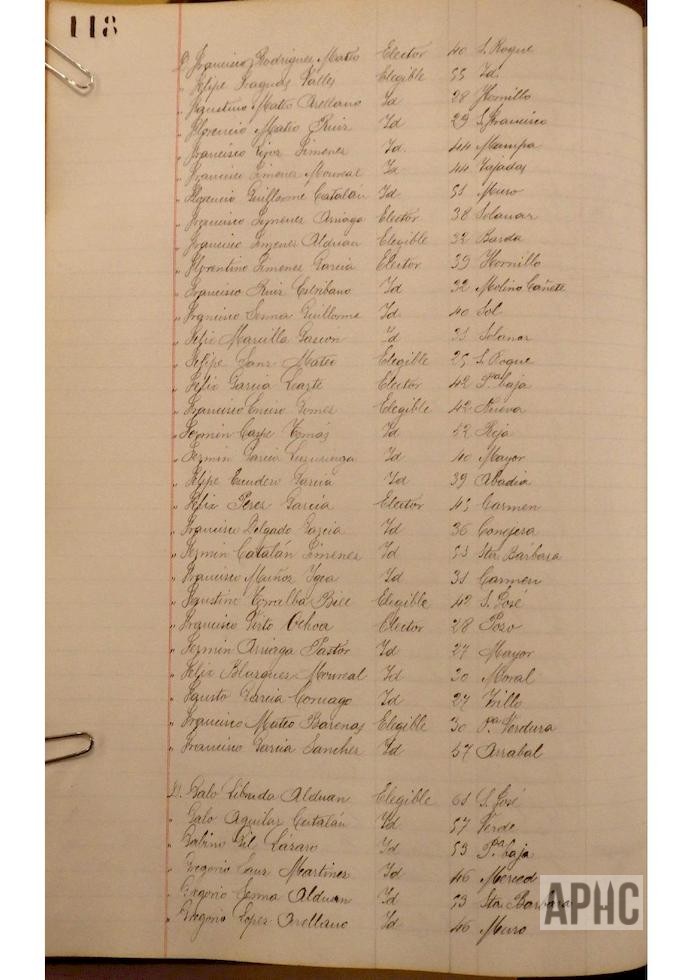 118
D. Francisco Rodrigues Mateo Elector 40 S. Roque
" Felipe Tragnas Valles Elegible 55 Id.
" Agustino Mateo Orellano Id 28 Hornillo
" Florencio Mateo Ruiz Id 29 S. Francisco
" Francisco Gimenes Id. 44 Mampa
" Francisco Gimenes Monreal Id 44 Tajadas
" Florencio Guillorme Catalán Id 51 Muro
" Francisco Gimenes Arriaga Elector 38 Solanar
" Francisco Gimenes Alduan Elegible 32 Barda
" Florentino Gimenes Garcia Elector 39 Hornillo
" Francisco Ruiz Escribano Id 32 Molino Cañete
" Francisco Senna Guillorme Id 40 Sol
" Felix Marcilla Gascon Id 33 Solanar
" Felipe Sanz Mateo Elegible 25 S. Roque
" Felix Garcia Lazte Elector 42 Pta baja
" Francisco Enciso Gomes Elegible 42 Nueva
" Fermin Caspe Tomás Id 42 Reja
" Fermin Garcia Luzuriaga Id 40 Mayor
" Felipe Escudero Garcia Id 39 Abadia
" Felix Péres Garcia Elector 45 Carmen
" Francisco Delgado Garcia Id 36 Conejera
" Fermin Catalán Gimenes Id 53 Sta Bárbara
" Francisco Muñoz Ygea Id 31 Carmen
" Faustino Torralba Biel Elegible 42 S. José
" Francisco Pinto Ochoa Elector 28 Pozo
" Fermin Arriaga Pastór Id 27 Mayor
" Felix Blasques Monreal Id 30 Moral
" Fausto Garcia Id 27 Trillo
" Francisco Mateo Barenas Elegible 30 Pa. Verdura
" Francisco Garcia Sanches Id 57 Arrabal
D. Galo Librada Alduan Elegible 65 S. José
" Galo Aguilar Catalán Id 57 Verde
" Gabino Gil Lázaro Id 53 Pta baja
" Gregorio Sanz Martines Id 46 Merced
" Gregorio Senna Alduan Id 53 Sta Barbara
" Gregorio Lopes Orellano Id 46 Muro
APHC